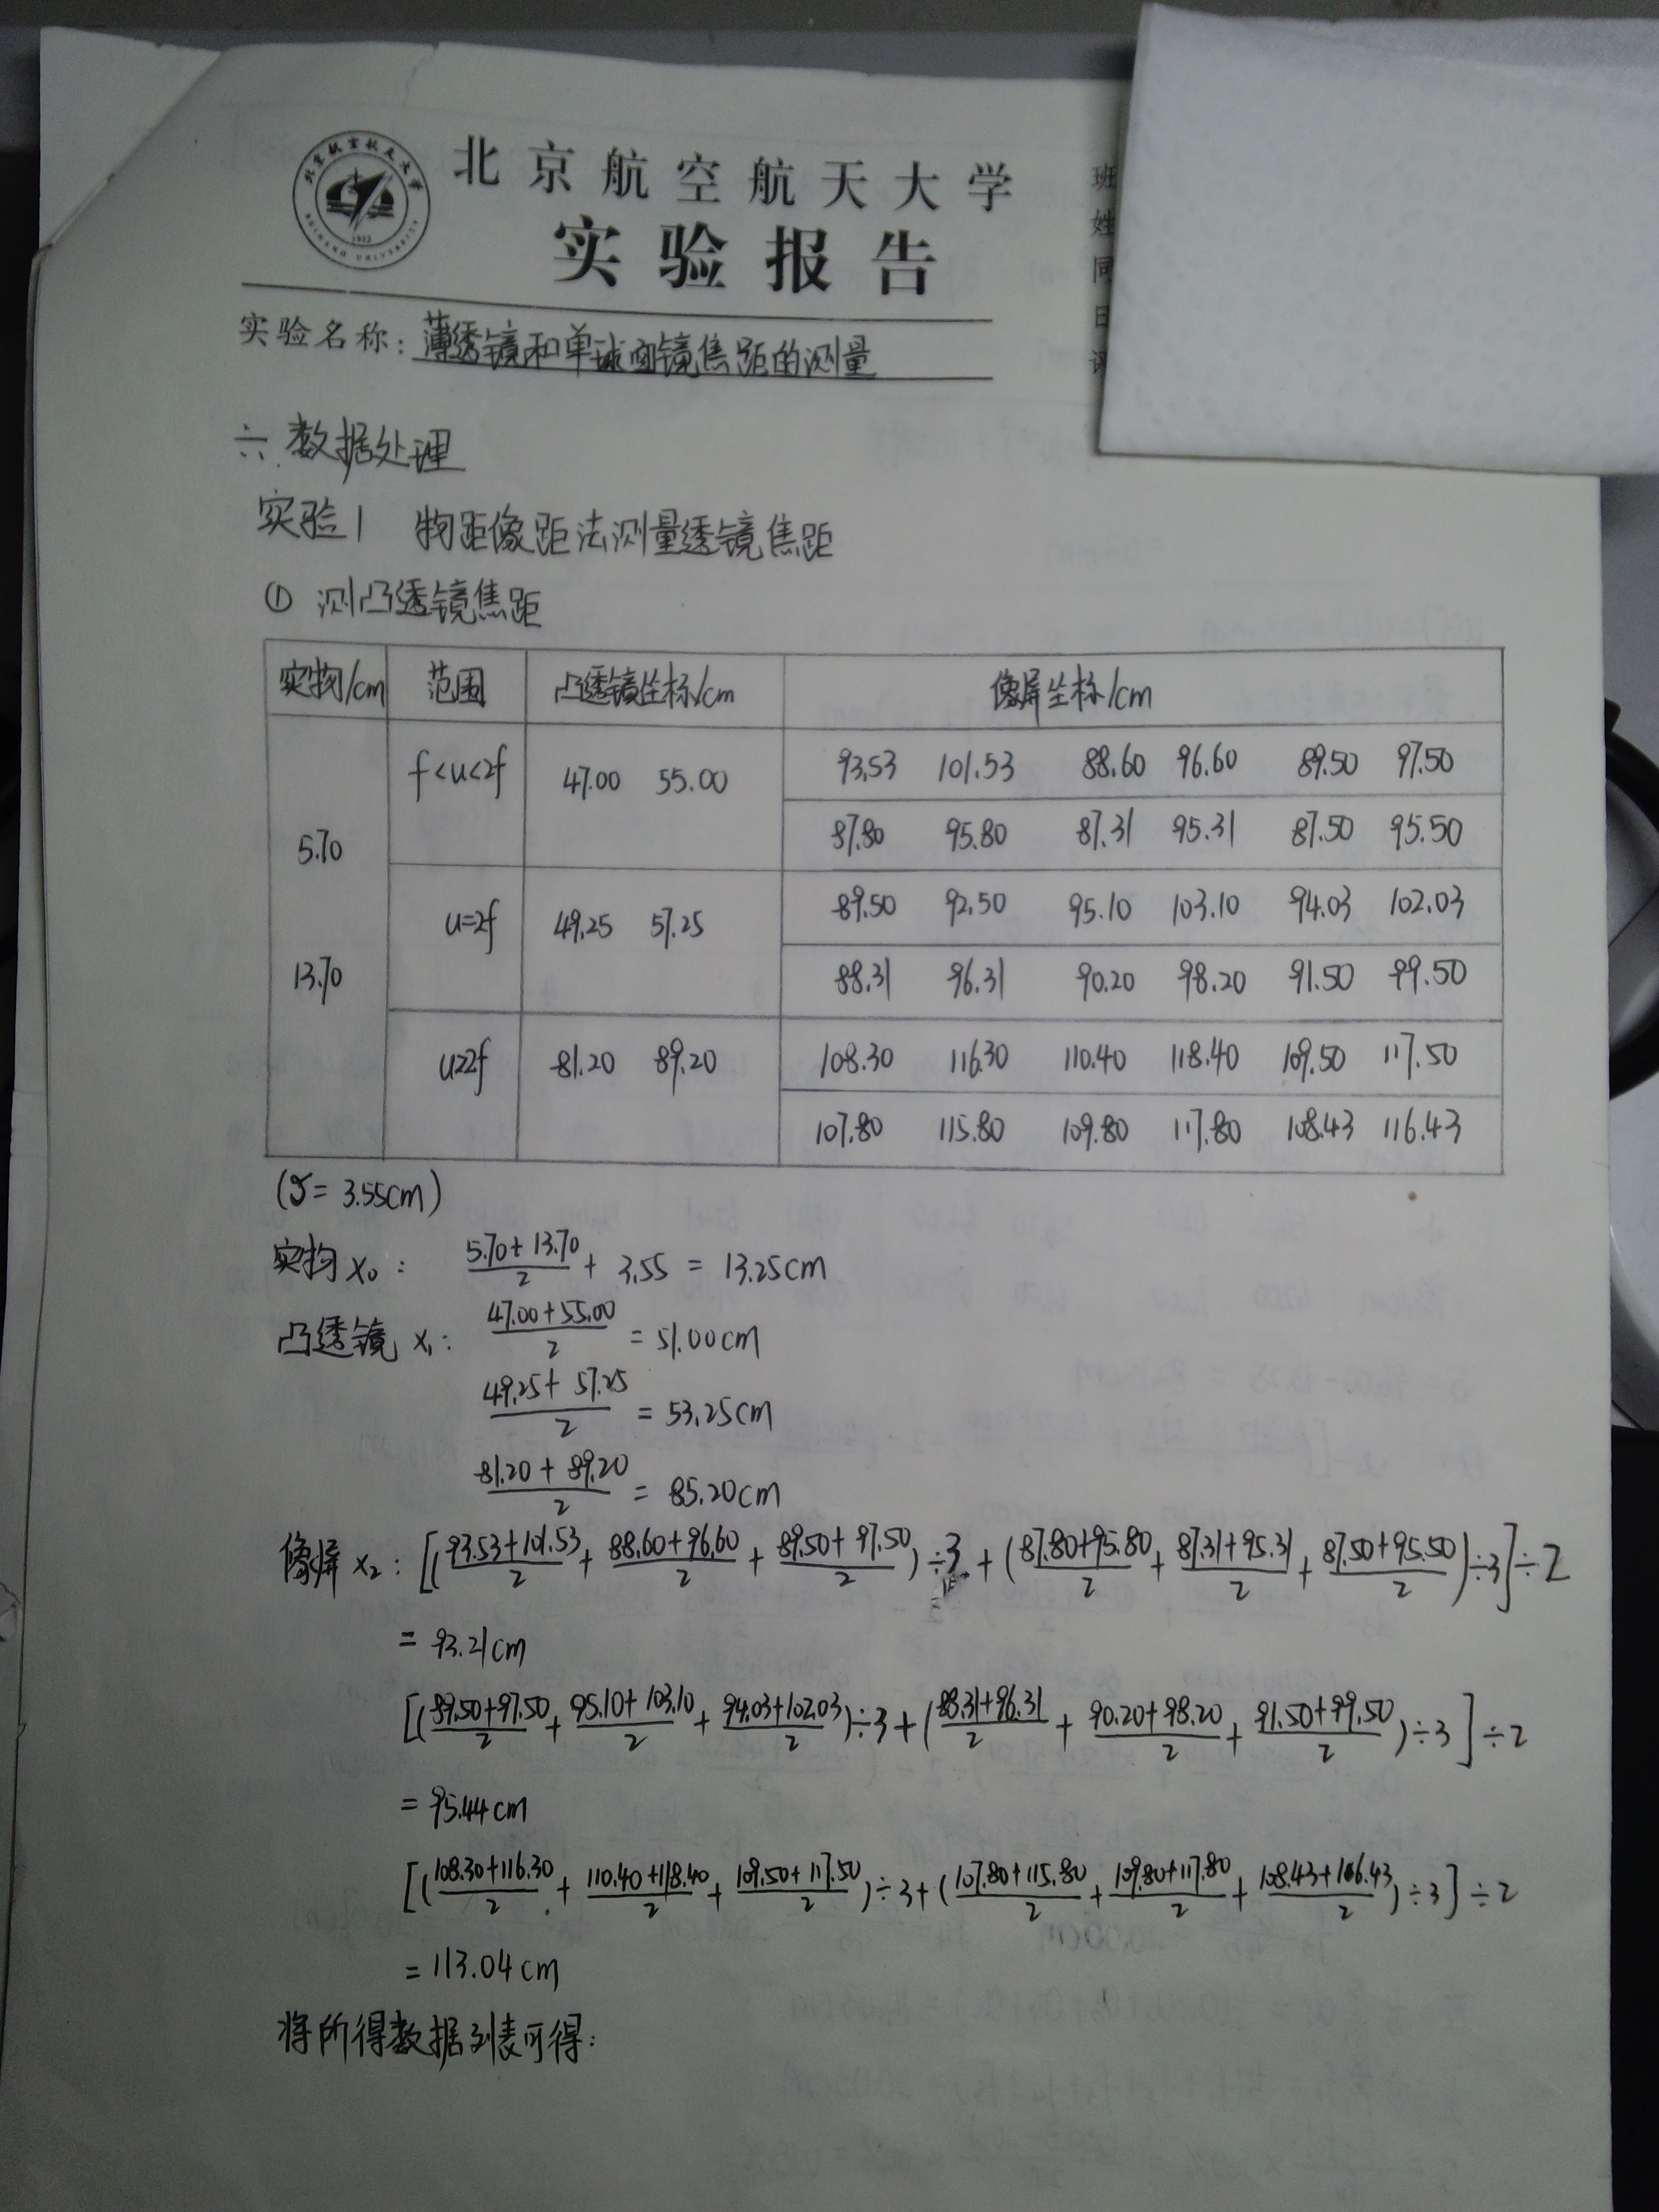 北京航空航天大学
实验报告
班
姓
同
日
评
实验名称：薄透镜和单球面镜焦距的测量
六.数据处理
实验1 物距像距法测量透镜焦距
① 测凸透镜焦距
实物/cm 范围 凸透镜坐标/cm 像屏坐标/cm
f<u<2f 47.00 55.00 93.53 101.53 88.60 96.60 89.50 97.50
5.70 87.80 95.80 87.31 95.31 87.50 95.50
u=2f 49.25 57.25 89.50 92.50 95.10 103.10 94.03 102.03
13.70 88.31 96.31 90.20 98.20 91.50 99.50
u≥2f 81.20 89.20 108.30 116.30 110.40 118.40 109.50 117.50
107.80 115.80 109.80 117.80 108.43 116.43
(δ= 3.55cm)
实物 x₀: (5.70+13.70)/2 + 3.55 = 13.25cm
凸透镜 x₁: (47.00+55.00)/2 = 51.00cm
(49.25+57.25)/2 = 53.25cm
(81.20+89.20)/2 = 85.20cm
像屏 x₂: [((93.53+101.53)/2 + (88.60+96.60)/2 + (89.50+97.50)/2)÷3 + ((87.80+95.80)/2 + (87.31+95.31)/2 + (87.50+95.50)/2)÷3]÷2
= 93.21cm
[((89.50+97.50)/2 + (95.10+103.10)/2 + (94.03+102.03)/2)÷3 + ((88.31+96.31)/2 + (90.20+98.20)/2 + (91.50+99.50)/2)÷3]÷2
= 95.44cm
[((108.30+116.30)/2 + (110.40+118.40)/2 + (109.50+117.50)/2)÷3 + ((107.80+115.80)/2 + (109.80+117.80)/2 + (108.43+116.43)/2)÷3]÷2
= 113.04cm
将所得数据列表可得：